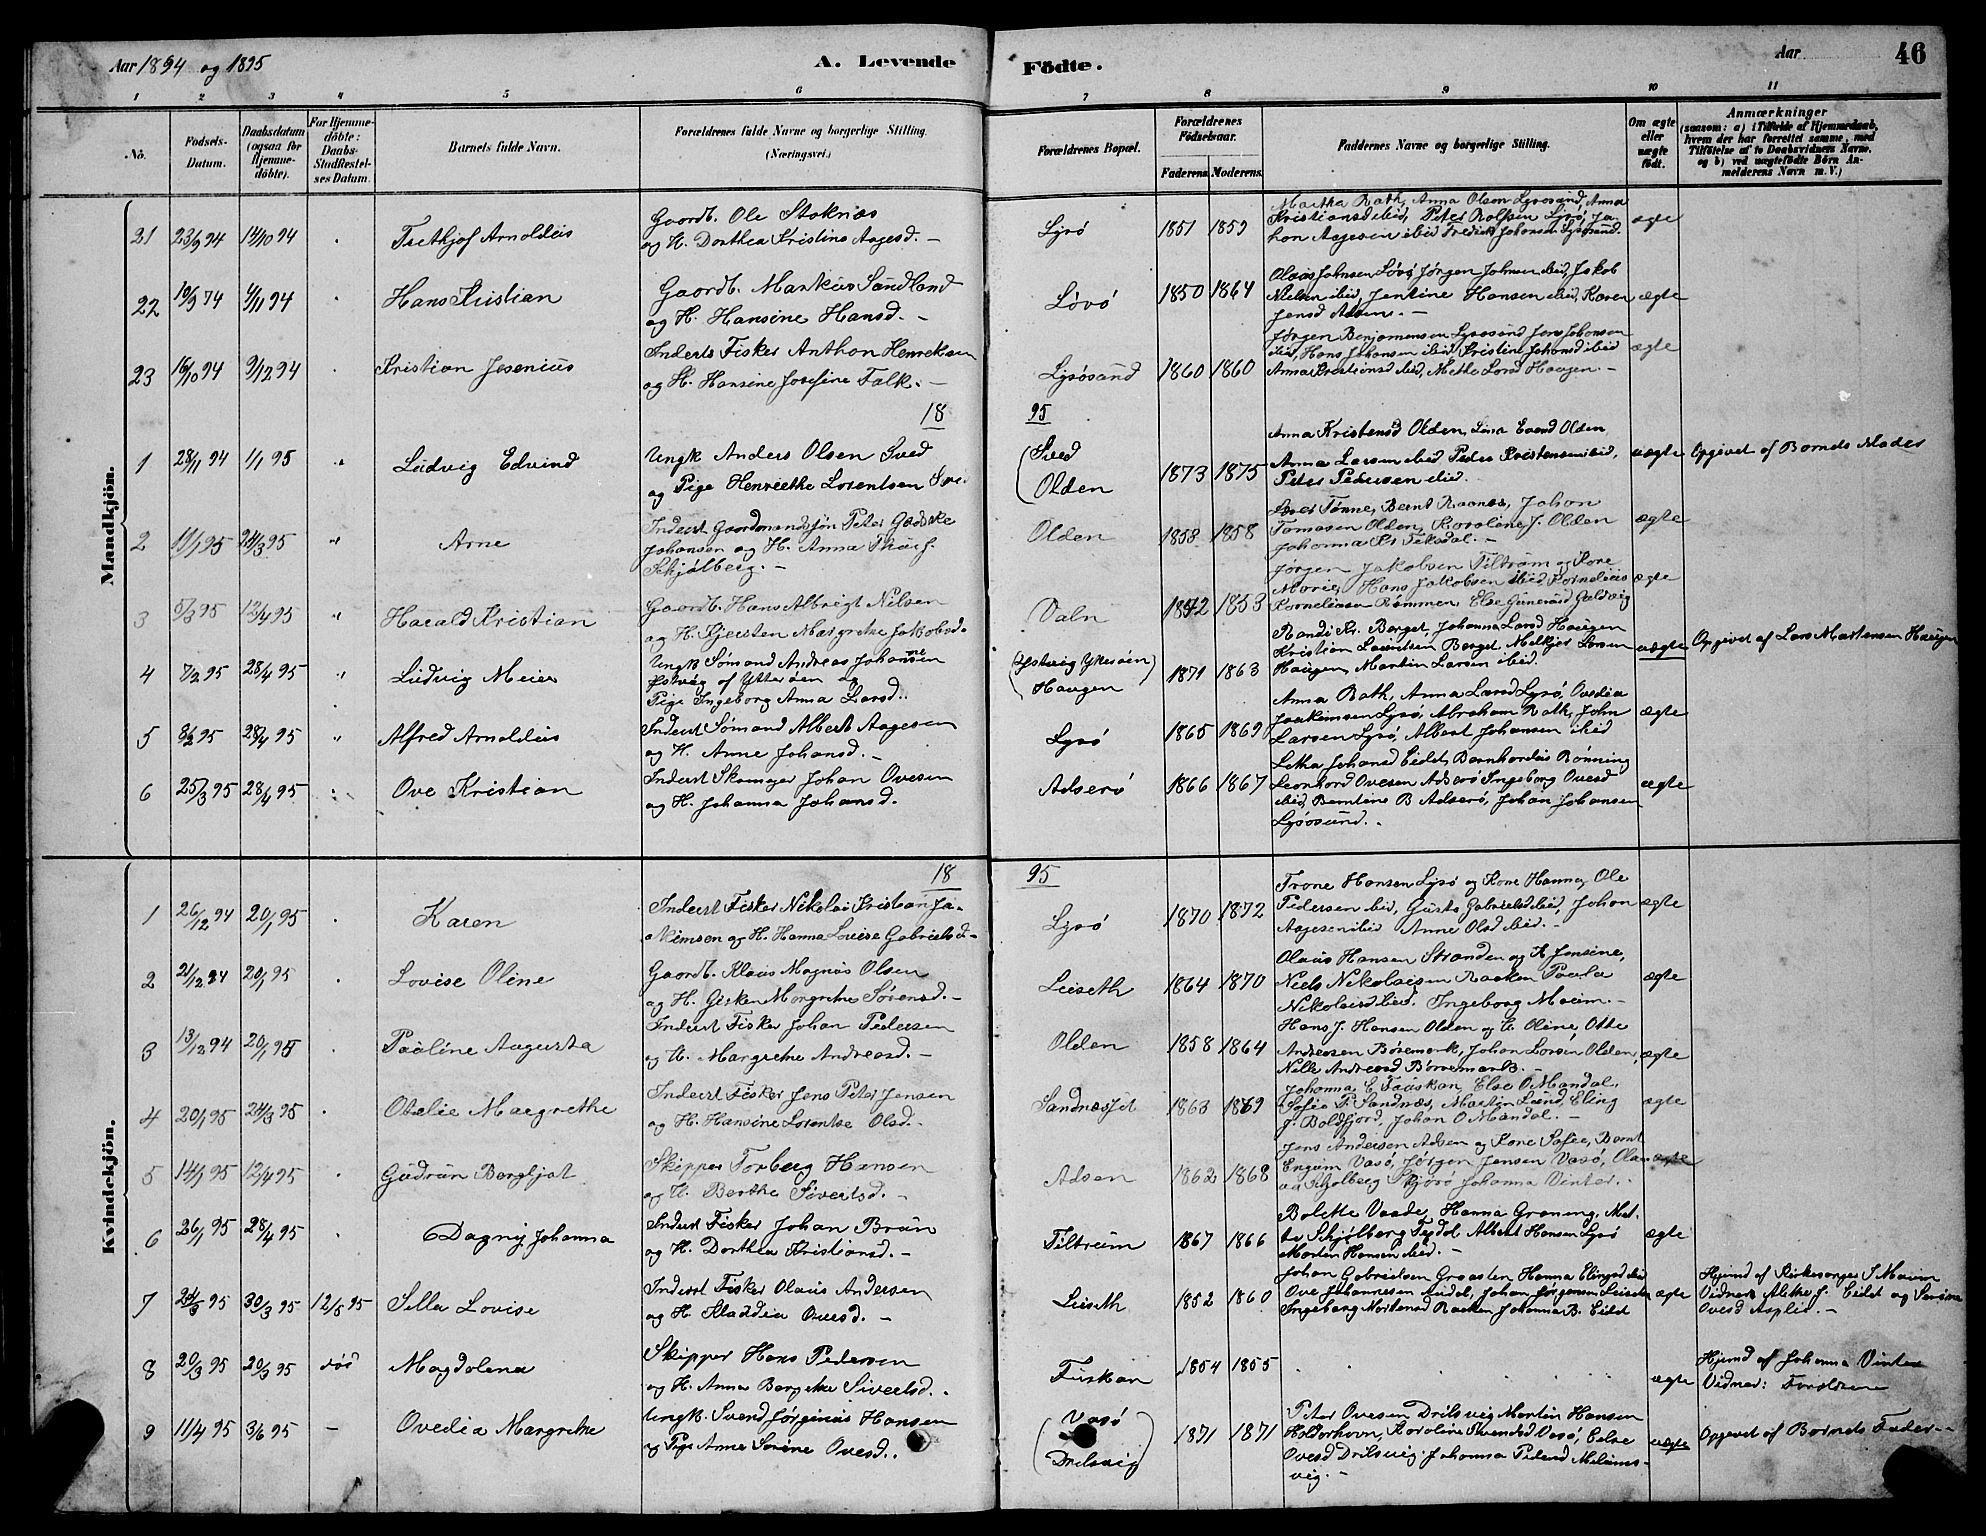 Aar 1894 og 1895
A. Levende Födte.
Aar
46
1 2 3 4 5 6 7 8 9 10 11
No.
Födsels-Datum.
Daabsdatum (ogsaa for Hjemmedöbte).
For Hjemmedöbte: Daabs-Stadfestelses Datum.
Barnets fulde Navn.
Forældrenes fulde Navne og borgerlige Stilling. (Næringsvei.)
Forældrenes Bopæl.
Forældrenes Födselsaar.
Faderens. Moderens.
Faddernes Navne og borgerlige Stilling.
Om ægte eller uægte födt.
Anmærkninger (saasom: a) i Tilfælde af Hjemmedaab, hvem der har forrettet samme, med Tilföielse af to Daabsvidners Navne, og b) ved uægtefödte Börn Anmelderens Navn m. V.)
Mandkjön.
21 23/9 94 14/10 94 Frethjof Arnoldus
Gaardb. Ole Stoknæs
og H. Dorthea Kristine Aagesd. -
Lysö 1851 1859
Martha Rath, Anna Olsen Lysösund, Anna
Kristiansd ibid, Peter Rolfsen Lysö, Jo-
han Aagesen ibid Fredrik Johansen Lysösund.
ægte
22 10/9 94 4/11 94 Hans Kristian
Gaardb. Markus Sundland
og H. Hansine Hansd. -
Lövö 1850 1864
Olaus Johnsen Lövö, Jörgen Johnsen ibid, Jakob
Nielsen ibid, Jentine Hansen ibid, Karen
Jensd Adsen. -
ægte
23 16/10 94 9/12 94 Kristian Jesenius
Inderst Fisker Anthon Henriksen
og H. Hansine Josefine Falk. -
Lysösund 1860 1860
Jörgen Benjaminsen Lysösund Jens Johansen
ibid, Hans Johansen ibid, Kristine Johansd ibid
Anna Kristiansd ibid, Mette Larsd Haugen -
ægte
18 95
1 28/11 94 1/1 95 " Ludvig Edvind
Ungk Anders Olsen Sved
og Pige Henriette Lorentsen
Sved
Olden
1873 1875
Anna Kristensd Olden, Lina Evensd Olden
Anna Larsen ibid Peder Kristensen ibid,
Peter Petersen ibid.
uægte Opgivet af Barnets Moder
2 11/1 95 24/3 95 " Arne
Inderst Gaardmandssön Peter
Johansen og H. Anna
Schjölberg. -
Olden 1858 1858
Tönne, Bernt Raanes, Johan
Tomasen Olden, Karoline J. Olden
Johanna Teksdal. -
ægte
3 5/3 95 12/4 95 " Harald Kristian
Gaardb. Hans Albrigt Nilsen
og H. Kjersten Margrethe Jakobsd.
Valn 1842 1853
Jörgen Jakobsen Tiltrum og Kone
Marie, Hans Jakobsen ibid Kornelius
Korneliusen Römmen, Else
ægte
4 7/2 95 28/4 95 " Ludvig Meier
Ungk Sömand Andreas Johannsen
Östvig af Ytteröen og
Pige Ingeborg Anna Larsd..
Östvig Ytteröen
Haugen
1871 1863
Randi Kr. Berget, Johanna Larsd Haugen
Kristian Lauritsen Berget, Melkjor Larsen
Haugen, Martin Larsen ibid.
uægte Opgivet af Lars Martensen Haugen
5 8/2 95 28/4 95 " Alfred Arnoldus
Inderst Sömand Albert Aagesen
og H. Anne Johansd. -
Lysö 1865 1869
Anna Rath, Anna Larsd Lysö, Ovedia
Joakimsen Lysö, Abraham Rath, John
Larsen Lysö, Albert Johansen ibid
ægte
6 25/3 95 28/4 95 Ove Kristian
Inderst Skomager Johan Ovesen
og H. Johanna Johansd.
Adserö 1866 1867
Letha Johansd Eidet, Bernhardus Rönning
Leonhard Ovesen Adserö Ingeborg Ovesd
ibid, Berntine B Adserö, Johan Johansen
Lysösund. -
ægte
Kvindekjön.
18 95
1 26/12 94 20/1 95 Karen
Inderst Fisker Nikolai Kristian Ja-
kimsen og H. Hanna Lovise Gabrielsd -
Lysö 1870 1872
Trone Hansen Lysö og Kone Hanna, Ole
Pedersen ibid, Gusta Gabrielsd ibid, Johan
Aagesen ibid Anne Olsd ibid. -
ægte
2 21/12 94 20/1 95 Lovise Oline
Gaardb. Klaus Magnus Olsen
og H. Gjeken Margrethe Sörensd. -
Leiseth 1864 1870
Olaus Hansen Stranden og K Jensine,
Niels Nikolaisen Raaken Paula
Nikolaisd ibid. Ingeborg Moum. -
ægte
3 13/12 94 20/1 95 Pauline Augusta
Inderst Fisker Johan Pedersen
og H. Margrethe Andreasd. -
Olden 1858 1864
Hans J. Hansen Olden og H. Oline, Otte
Andreasen Börsemark, Johan Larsen Olden,
Nille Andreasd Börvemark. -
ægte
4 20/1 95 24/3 95 Otelie Margrethe
Inderst Fisker Jens Peter Jensen
og H. Hansine Lorentse Olsd. -
Sandnæsset 1863 1869
Johanna E Fuuskan, Else O Mandal,
Sofie P. Sandnæs, Martin Lund, Eling
J. Boldfjord, Johan O Mandal. -
ægte
5 14/1 95 12/4 95 Gudrun Bergljot
Skipper Torberg Hansen
og H. Berthe Sivertsd. -
Adsen 1862 1868
Jens Andersen Adsen og Kone Sofie, Bernt
Engum Vasö, Jörgen Jensen Vasö,
Johanna Vinter. -
ægte
6 26/1 95 28/4 95 Dagny Johanna
Inderst Fisker Johan Brun
og H. Dorthea Kristiansd. -
Tiltrum 1867 1866
Bolette Vaade, Hanna Graning, Met-
te Skjölberg Albert Hansen Lysö
Morten Hansen ibid. -
ægte
7 24/3 95 30/3 95 12/5 95 Sella Lovise
Inderst Fisker Olaus Andersen
og H. Kladdia Ovesd. -
Leiseth 1852 1860
Johan Gabrielsen Graasten, Hanna Elingsd ibid
Ove Johannesen Eidet, Johan Jörgensen Leiseth
Ingeborg Mortensd Raaken Johanna B. Eidet
ægte
Hjemd af Kirkesanger S Moum
Vidner Alette J. Eidet og Serine
Ovesd Asplie. -
8 20/3 95 20/3 95 död Magdalena
Skipper Hans Pedersen
og H. Anna Bergithe Sivertsd. .
Fuskan 1854 1855
ægte
Hjemd af Johanna Vinter
Vidner: Forældrene
9 11/4 95 3/6 95 - Ovedia Margrethe
Ungk. Svend Jörginus Hansen
og Pige Anne Serine Ovesd..
Vasö
Drilsvig
1871 1871
Peter Ovesen Drilsvig Martin Hansen
Holderhovn, Karoline Svendsd Vasö, Else
Ovesd Drilsvig Johanna Pedersd
vig. -
uægte Opgivet af Barnets Fader -